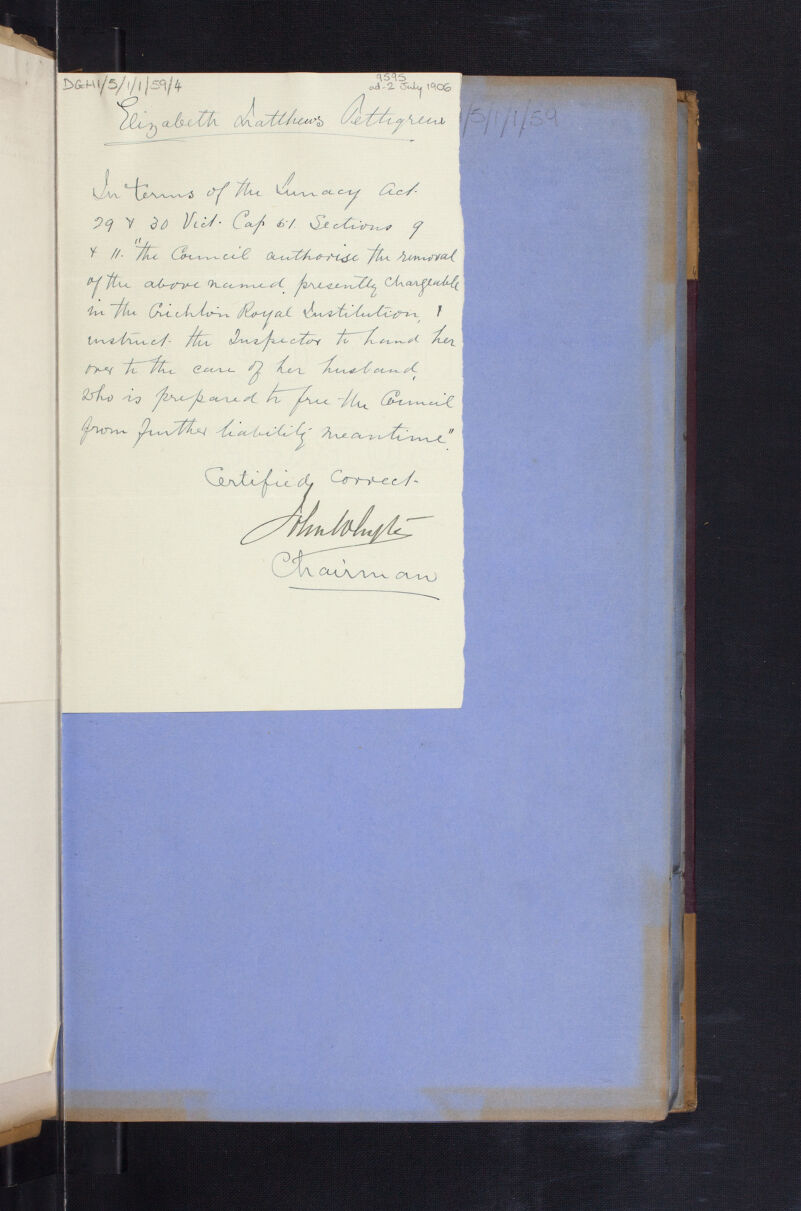 DGH1/5/1/1/59/4
9595
ad. 2 July 1906
Elizabeth Matthews Pettigrew
/5/1/1/59
In terms of the Lunacy Act.
29 & 30 Vict. Cap 51. Sections 9
& 11. "the Council authorise the removal
of the above named, presently chargeable
in the Crichton Royal Institution, &
instruct the Inspector to hand her
over to the care of her husband,
who is prepared to free the Council
from further liability meantime".
Certified correct
John Whyte
Chairman